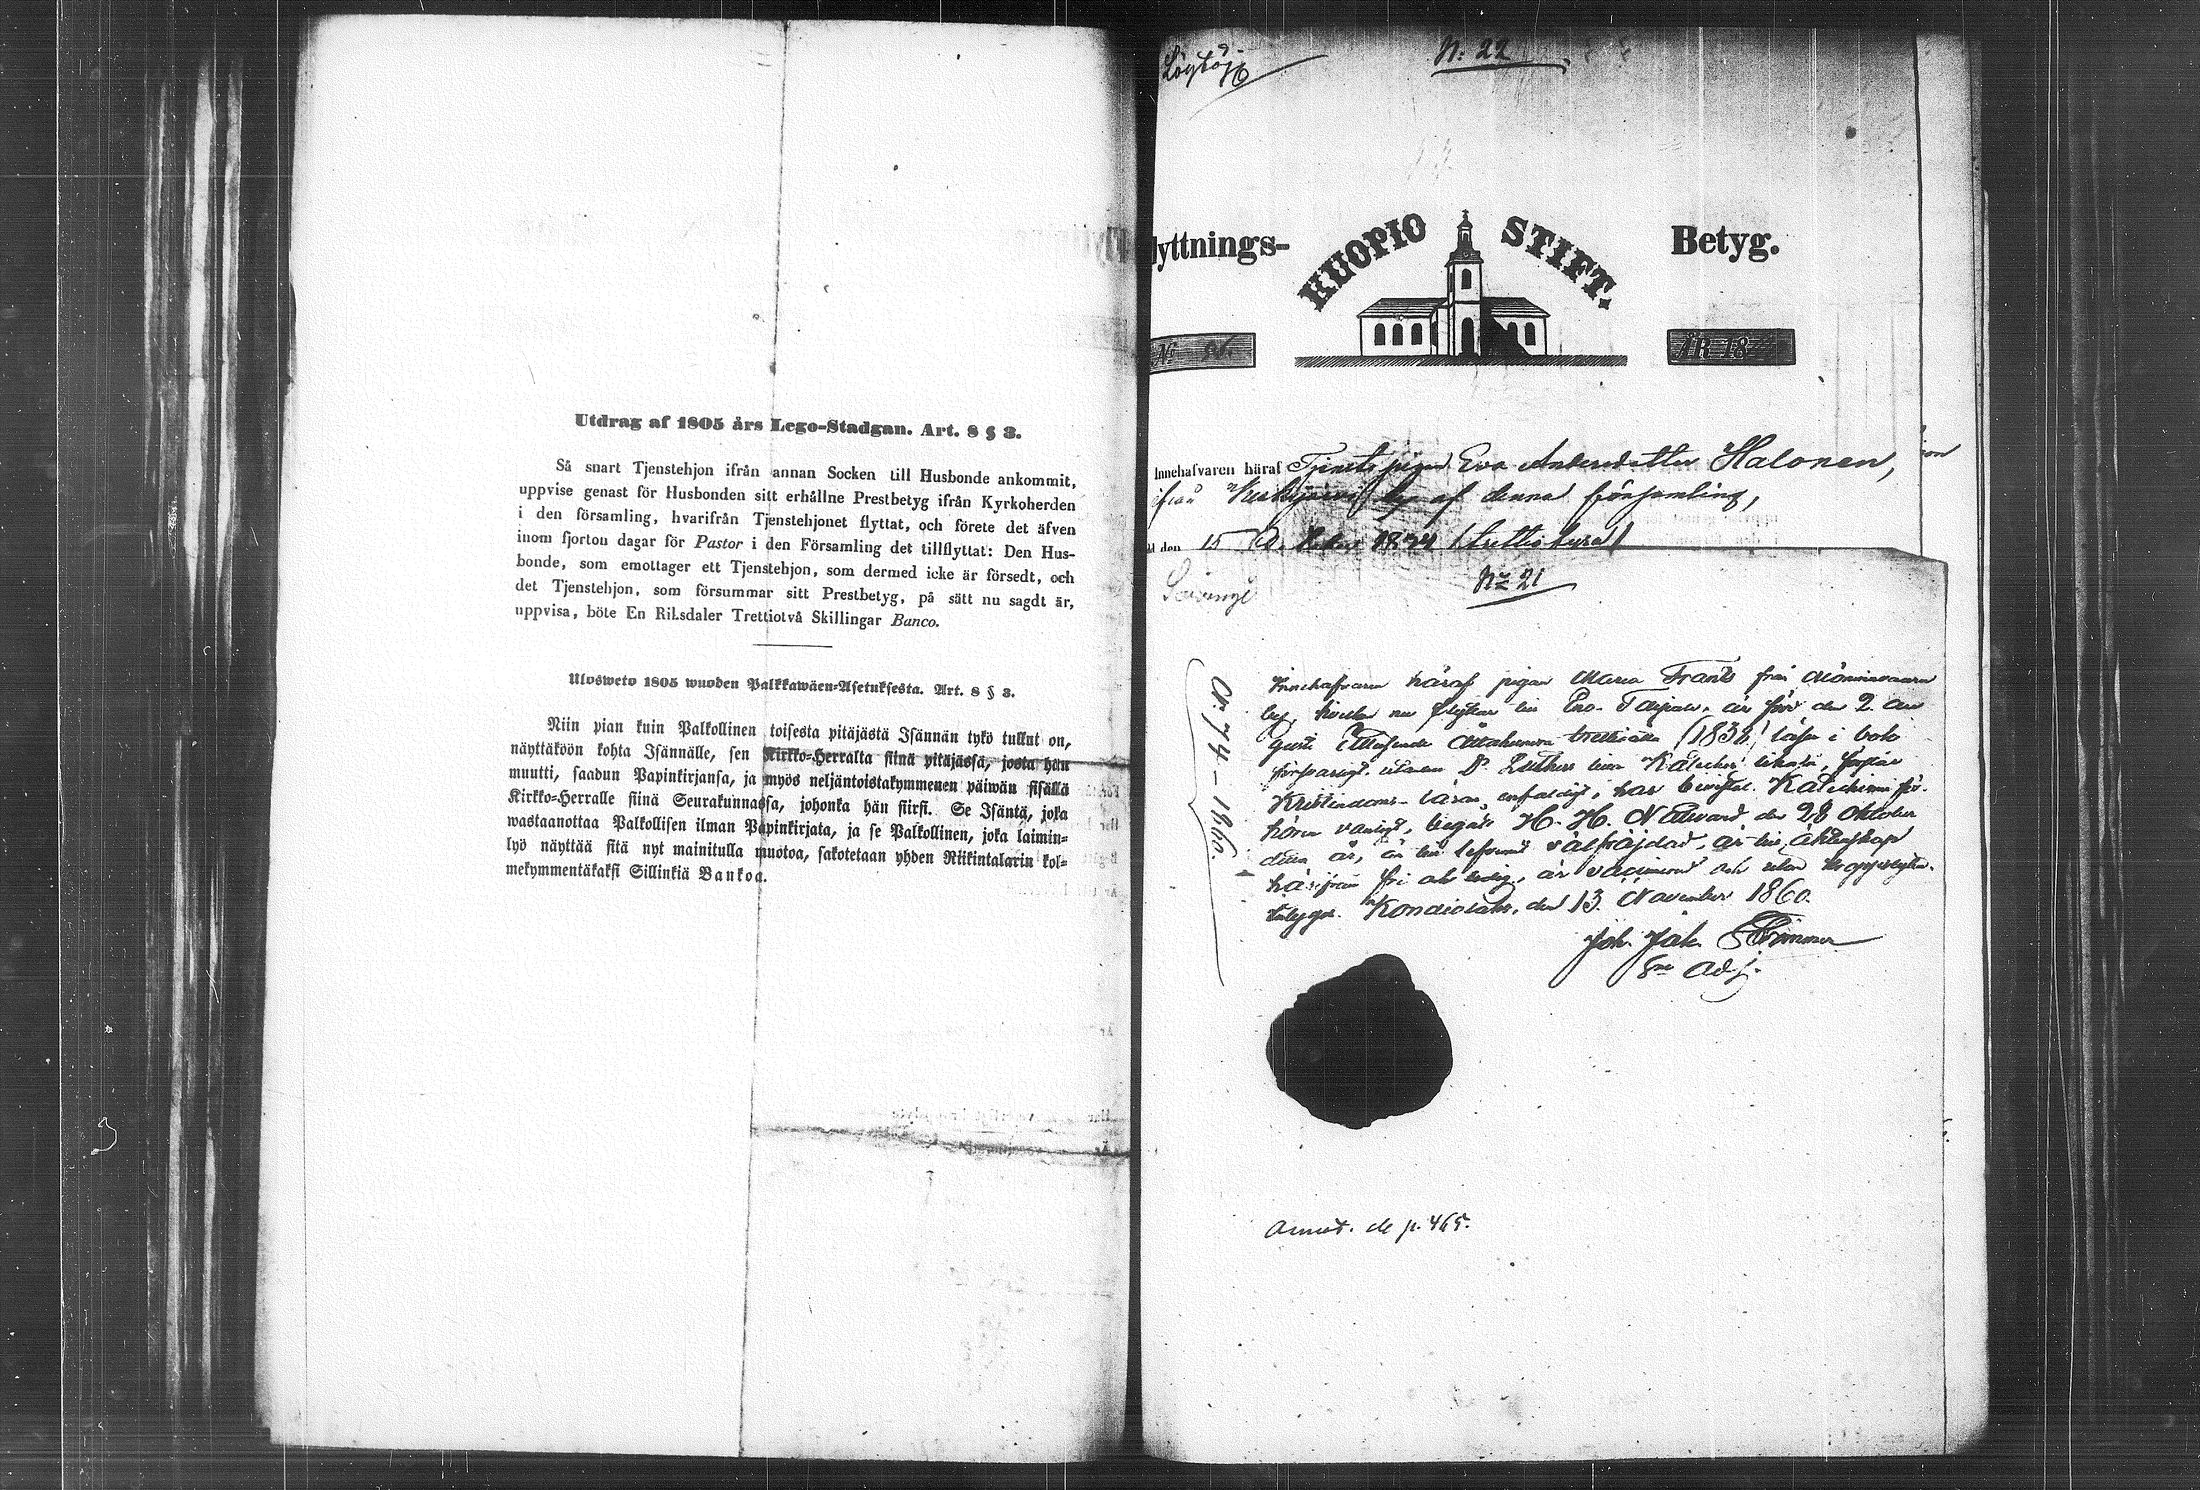 Utdrag af 1805 års Lego-Stadgan. Art. 8 § 3.
Så snart Tjenstehjon ifrån annan Socken till Husbonde ankommit,
uppvise genast för Husbonden sitt erhållne Prestbetyg ifrån Kyrkoherden
i den församling, hvarifrån Tjenstehjonet flyttat, och förete det äfven
inom fjorton dagar för Pastor i den Församling det tillflyttat: Den Hus-
bonde, som emottager ett Tjenstehjon, som dermed icke är försedt, och
det Tjenstehjon, som försummar sitt Prestbetyg, på sätt nu sagdt är,
uppvisa, böte En Riksdaler Trettiotvå Skillingar Banco.
Ulosweto 1805 wuoden Palkkawäen-Asetuksesta. Art. 8 § 3.
Niin pian kuin Palkollinen toisesta pitäjästä Isännän tykö tullut on,
näyttäköön kohta Isännälle, sen Kirkko-Herralta siinä pitäjässä, josta hän
muutti, saadun Papinkirjansa, ja myös neljäntoistakymmenen päiwän sisällä
Kirkko-Herralle siinä Seurakunnassa, johonka hän siirsi. Se Isäntä, joka
wastaanottaa Palkollisen ilman Papinkirjata, ja se Palkollinen, joka laimin-
lyö näyttää sitä nyt mainitulla muotoa, sakotetaan yhden Riikintalarin kol-
mekymmentäkaksi Sillinkiä Bankoa.
N: 22
lyttnings- KUOPIO STIFT. Betyg.
No
ÅR 18
Innehafvaren häraf Tjensts pigan Eva Andersdotter Halonen,
ifrån by af denna församling,
den 15
No 21
Innehafvaren häraf pigan Maria Frants från Mönninvaara
by, hvilken nu flyttar till Eno-Taipale, är född den 2 Au
gusti Ettusende Åttahundra trettioåtta (1838) läser i bok
försvarligt, utantill Dr Luthers lilla Kateches, förstår
Kristendoms-läran enfaldigt, har bevistat Katechismi för-
hören vanligt, begått H. H. Nattvard den 28 Oktober
detta år, är till lefvernet välfräjdad, är till äktenskap
härifrån fri och ledig, är vaccinerad och utan
Kondiolaks, den 13 November 1860.
Joh. Jak.
v. Adj.
N. 74 - 1860.
Annot. de p. 465.